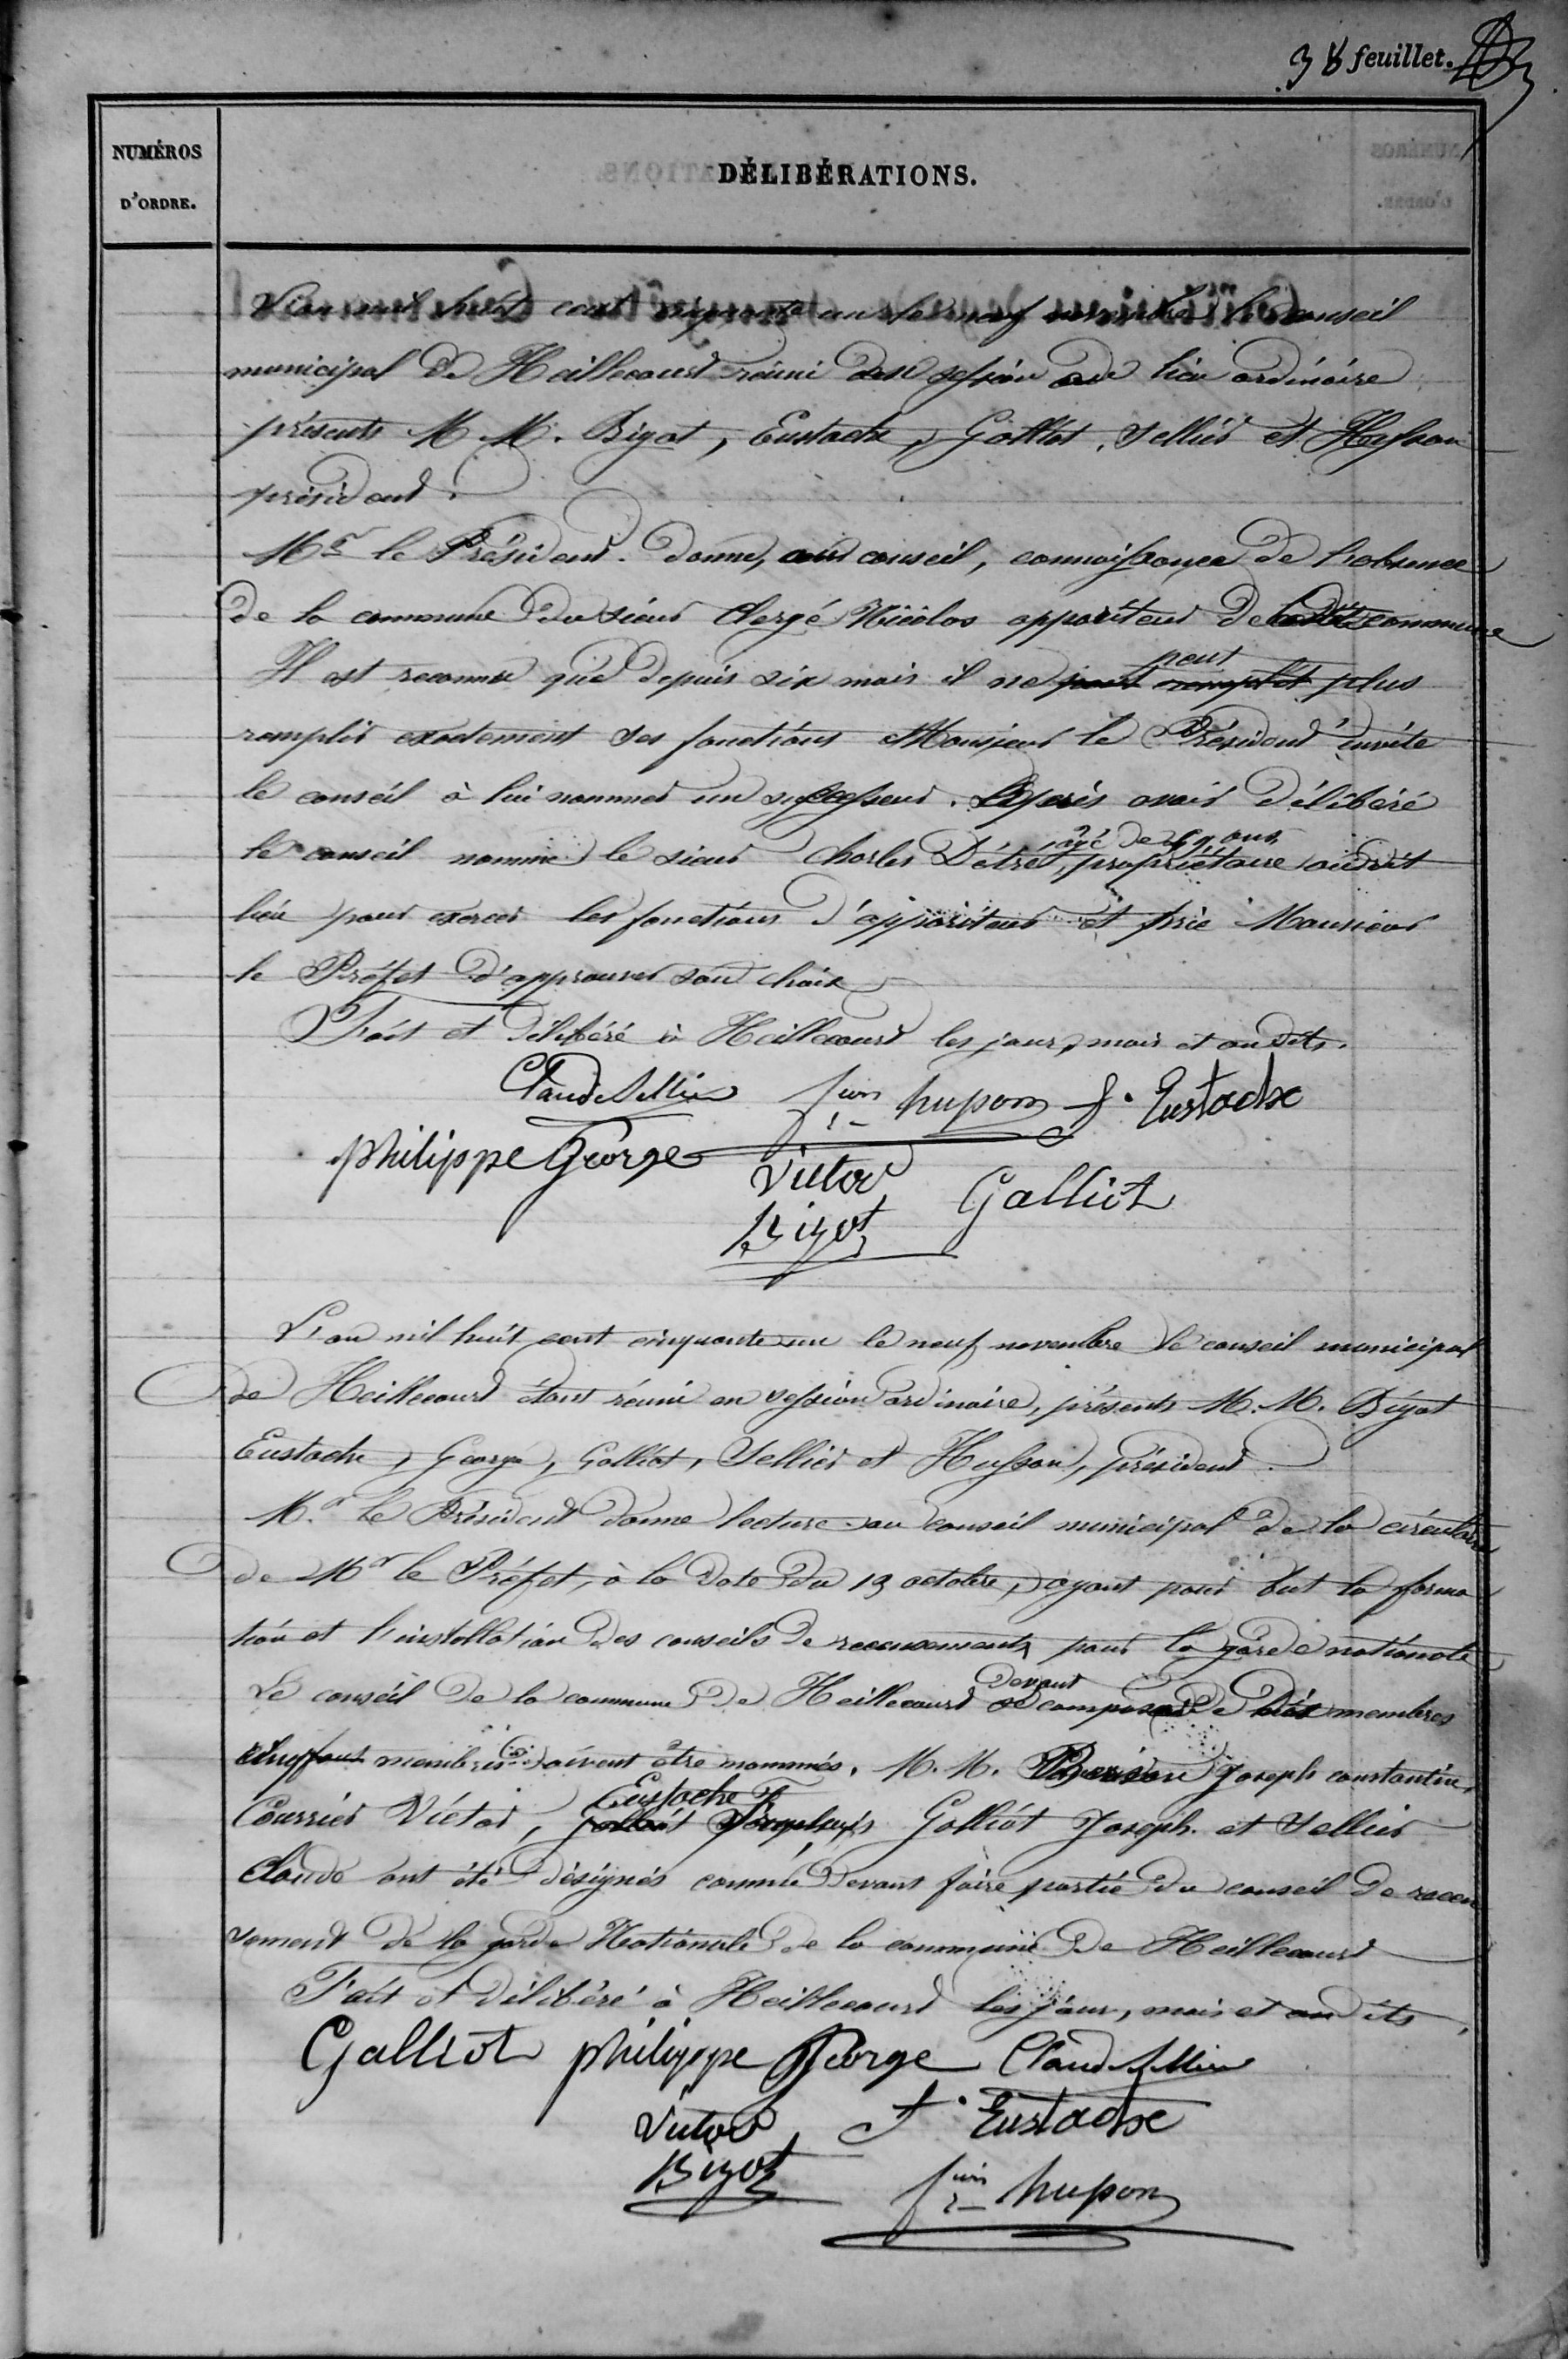 38 feuillet.
NUMÉROS
D'ORDRE.
DÉLIBÉRATIONS.
L'an mil huit cent cinquante un le neuf novembre le conseil
municipal de Heillecourt réuni en session au lieu ordinaire
présents M. M. Bizot, Eustache, Galliot, Sellier et Husson
président.
Mr le Président donne, au conseil, connaissance de l'absence
de la commune du sieur Clergé Nicolas appariteur de commune
Il est reconnu que depuis six mois il ne peut plus
remplir exactement ses fonctions Monsieur le Président invite
le conseil à lui nommer un successeur. Après avoir délibéré
le conseil nomme le sieur Charles Détré, âgé de ans propriétaire audit
lieu pour exercer les fonctions d'appariteur et prie Monsieur
le Préfet d'approuver son choix
Fait et délibéré à Heillecourt les jour, mois et an dits.
Claude Sellier fois husson f. Eustache
philippe George Victor Galliot
Bizot
L'an mil huit cent cinquante un le neuf novembre le conseil municipal
de Heillecourt étant réuni en session ordinaire, présents M. M. Bizot
Eustache, George, Galliot, Sellier et Husson, président.
M.r le Président donne lecture au conseil municipal de la circulaire
de Mr le Préfet, à la date du 13 octobre, ayant pour but la forma
tion et l'installation des conseils de recensements pour la garde nationale
Le conseil de la commune de Heillecourt devant se composer de membres
membres doivent être nommés. M. M. Joseph constantin,
Courrier Victor, Eustache F Galliot Joseph et Sellier
Claude ont été désignés comme devant faire partie du conseil de recen
sement de la garde Nationale de la commune de Heillecourt
Fait et délibéré à Heillecourt les jour, mois et an dits.
Galliot philippe George Claude Sellier
Victor f. Eustache
Bizot fois husson